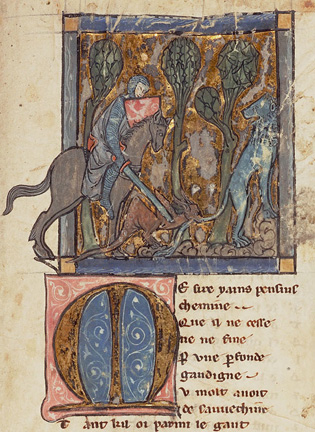 M E sire yains pensius
chemine
Que il ne cesse
ne ne fine
P vne pfonde
gaudigne
V molt auoit
de sauuechine
T ant kil oi parmi le gaut